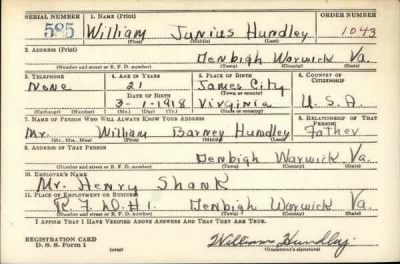 SERIAL NUMBER 1. NAME (Print) ORDER NUMBER
585 William Junius Hundley 1043
(First) (Middle) (Last)
2. ADDRESS (Print)
Denbigh Warwick Va.
(Number and street or R. F. D. number) (Town) (County) (State)
3. TELEPHONE 4. AGE IN YEARS 5. PLACE OF BIRTH 6. COUNTRY OF CITIZENSHIP
None 21 James City
DATE OF BIRTH (Town or county)
3-1-1918 Virginia U.S.A.
(Exchange) (Number) (Mo.) (Day) (Yr.) (State or country)
7. NAME OF PERSON WHO WILL ALWAYS KNOW YOUR ADDRESS 8. RELATIONSHIP OF THAT PERSON
Mr. William Barney Hundley Father
(Mr., Mrs., Miss) (First) (Middle) (Last)
9. ADDRESS OF THAT PERSON
Denbigh Warwick Va.
(Number and street or R. F. D. number) (Town) (County) (State)
10. EMPLOYER'S NAME
Mr. Henry Shank
11. PLACE OF EMPLOYMENT OR BUSINESS
R.F.D.#1. Denbigh Warwick Va.
(Number and street or R. F. D. number) (Town) (County) (State)
I AFFIRM THAT I HAVE VERIFIED ABOVE ANSWERS AND THAT THEY ARE TRUE.
REGISTRATION CARD William Hundley
D. S. S. Form 1 (over) (Registrant's signature)